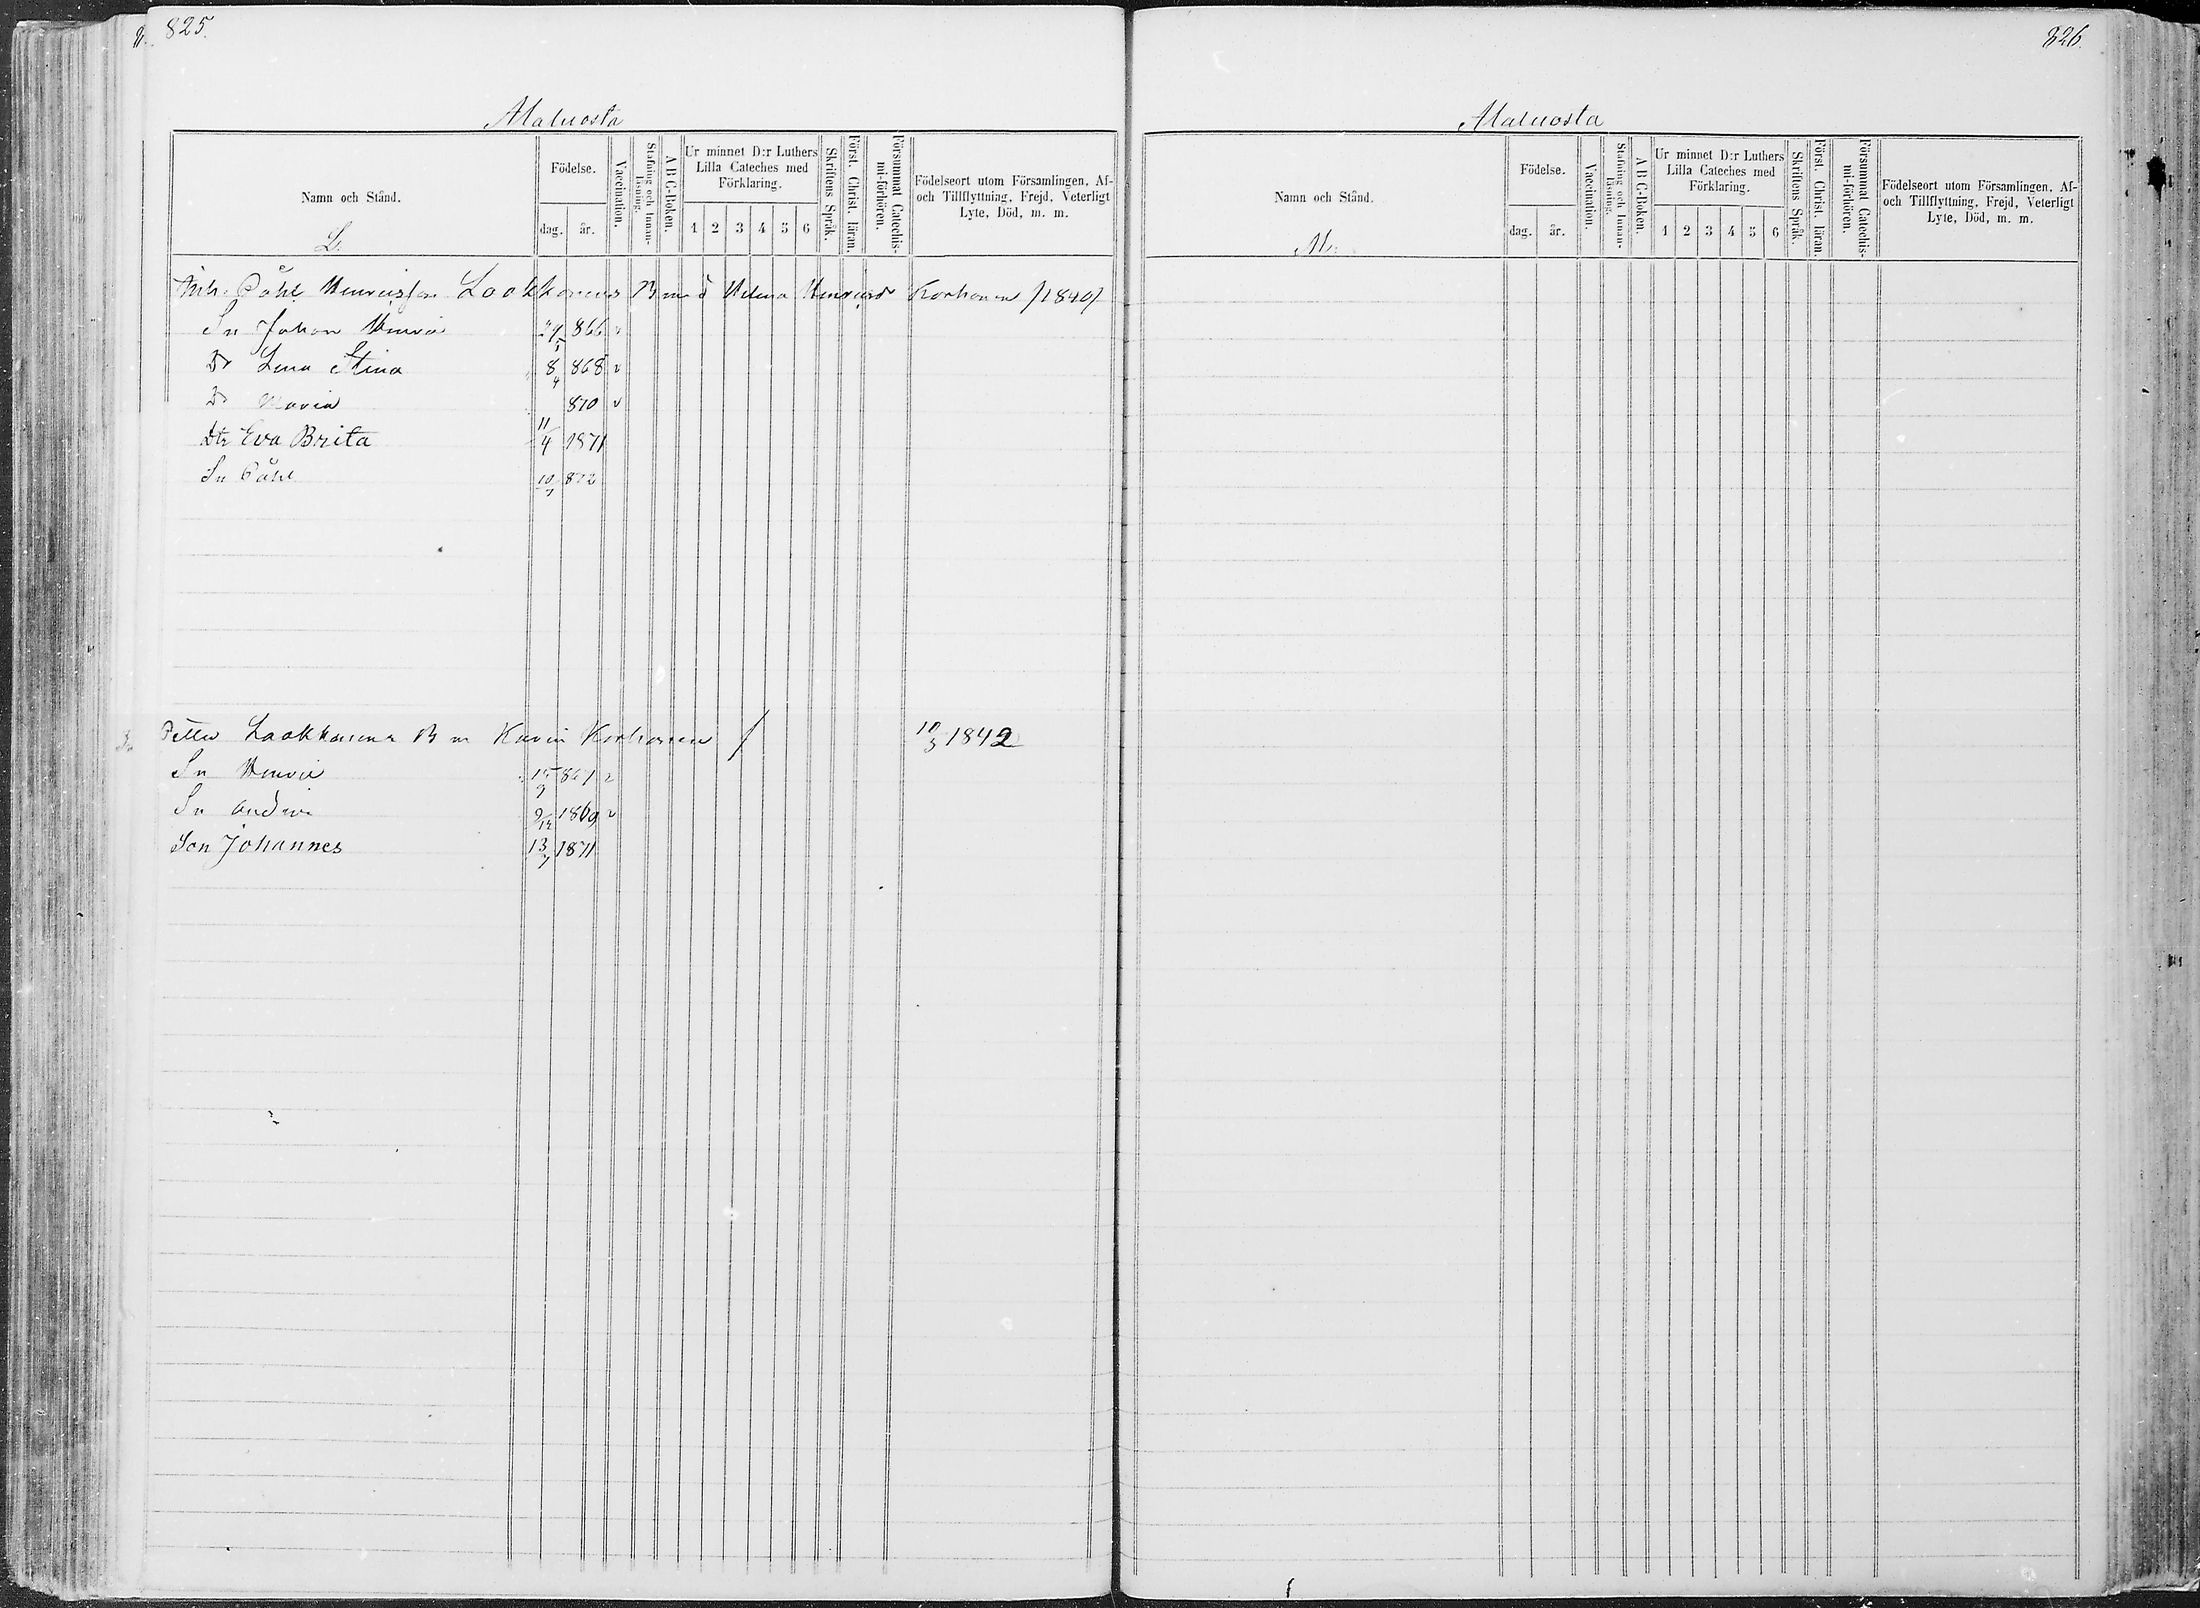 825.
Maluosta
Namn och Stånd.
L.
Födelse.
dag.
år.
Vaccination.
Stafning och Innan-
läsning.
A B C-Boken.
Ur minnet D:r Luthers
Lilla Cateches med
Förklaring.
1 2 3 4 5 6
Skriftens Språk.
Först. Christ. läran.
Försummat Catechis-
mi-förhören.
Födelseort utom Församlingen, Af-
och Tillflyttning, Frejd, Veterligt
Lyte, Död, m. m.
Påhl Henricsson Laakkonens B m d Helena Henricsd Korhonen /1840/
Sn Johan Henric 29/5 866 v
Dr Lena Stina 8/4 868 v
Dr Maria 870 v
Dtr Eva Brita 11/4 1871
Sn Påhl 10/7 872
Petter Laakkonens B m Karin Korhonen / 10/3 1842
Sn Henric 15/9 867 v
Sn Andrie 9/12 1869 v
Son Johannes 13/7 1871
826.
Maluosta
Namn och Stånd.
M.
Födelse.
dag.
år.
Vaccination.
Stafning och Innan-
läsning.
A B C-Boken.
Ur minnet D:r Luthers
Lilla Cateches med
Förklaring.
1 2 3 4 5 6
Skriftens Språk.
Först. Christ. läran.
Försummat Catechis-
mi-förhören.
Födelseort utom Församlingen, Af-
och Tillflyttning, Frejd, Veterligt
Lyte, Död, m. m.